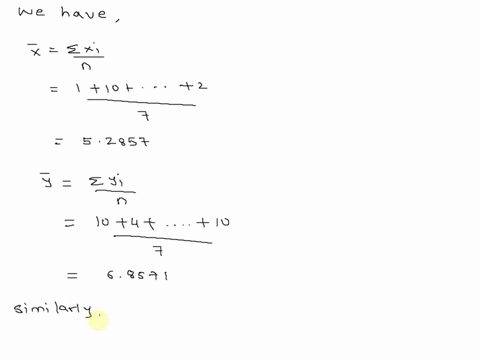 we have,
x̄ = Σxi
n
= 1 + 10 + ... + 2
7
= 5.2857
ȳ = Σyi
n
= 10 + 4 + .... + 10
7
= 6.8571
similarly.